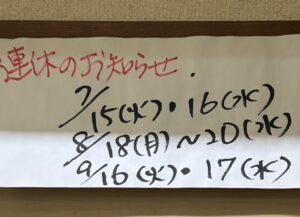 連休のお知らせ.
7/15(火)・16(水)
8/18(月)~20(水)
9/16(火)・17(水)